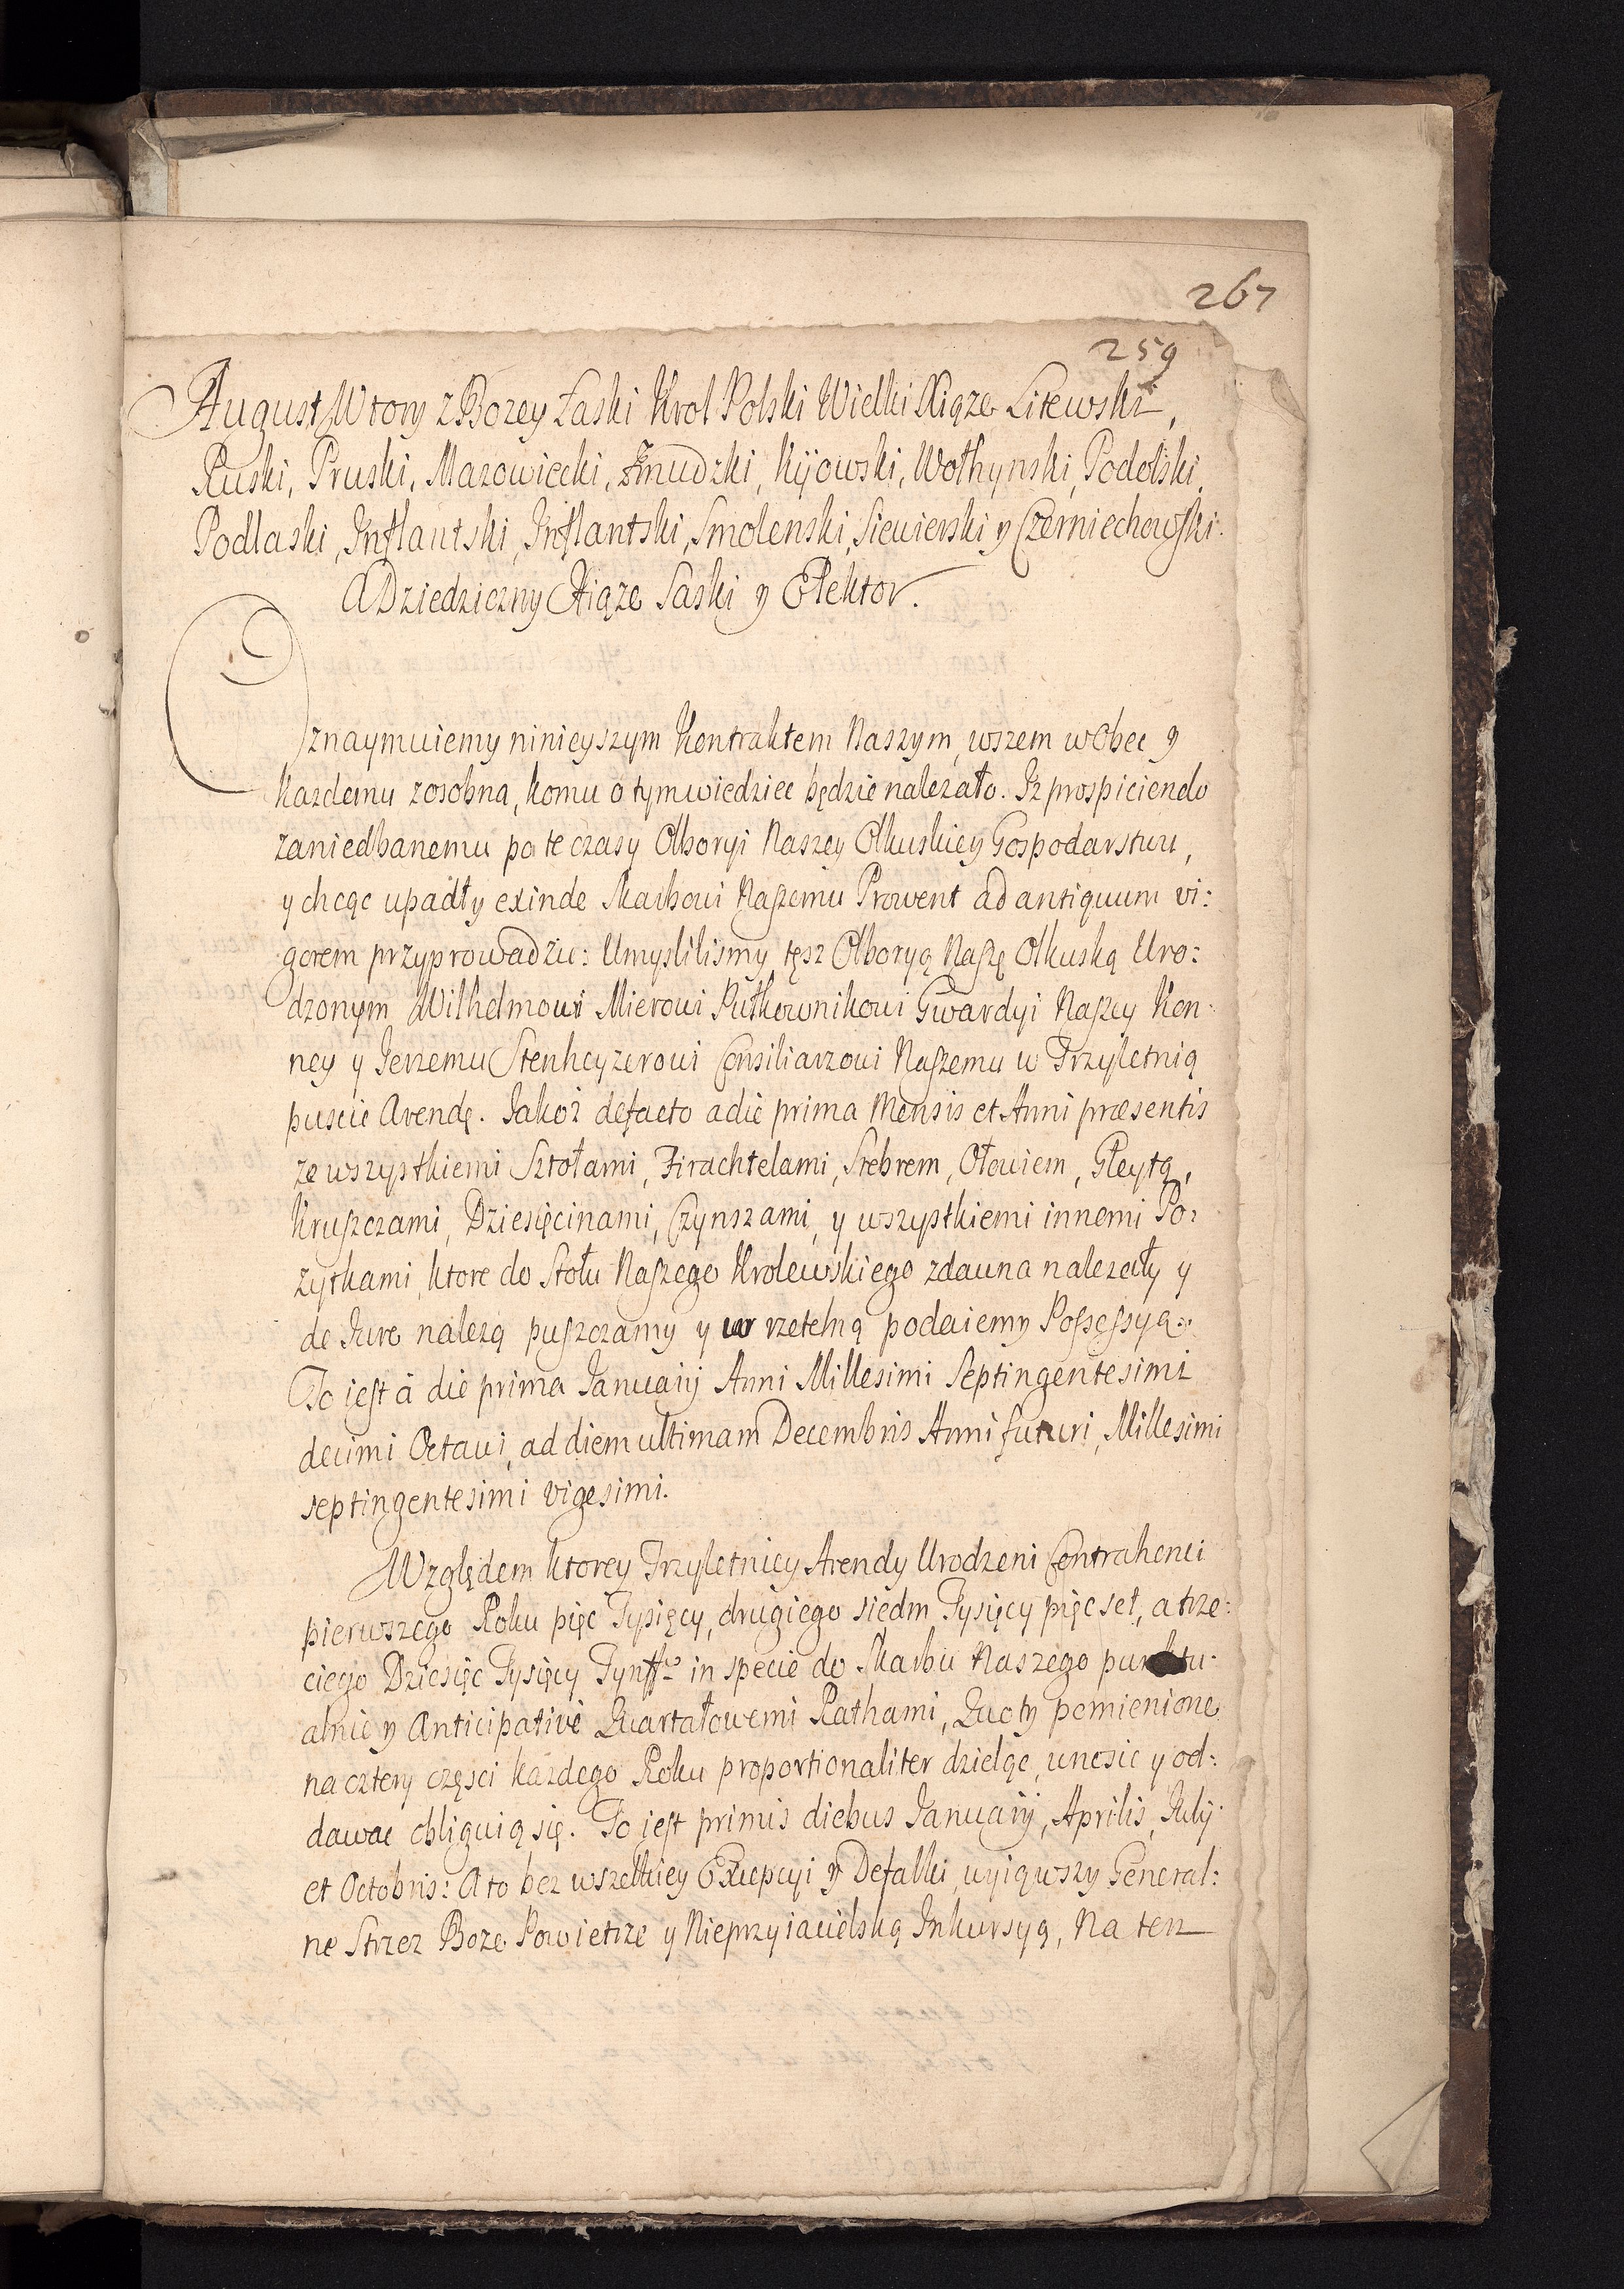 267
259
August Wtory z Bozey Łaski Krol Polski Wielki Xiąze Litewski,
Ruski, Pruski, Mazowiecki, Zmudzki, Kijowski, Wołhynski, Podolski,
Podlaski, Inflantski, Inflantski, Smolenski, Siewierski y Czerniechowski.
A Dziedziczny Xiąze Saski y Elektor.
Oznaymuiemy ninieyszym Kontraktem Naszym, wszem wobec y
każdemu zosobna, komu o tym wiedziec będzie nalezało. Iz prospiciendo
zaniedbanemu po te czasy Olboryi Naszey Olkuskiey Gospodarstwu,
y chcąc upadły exinde Skarbowi Naszemu Prowent ad antiquum vi:
gorem przyprowadzic: Umyslilismy tęsz Olboryą Naszę Olkuską Uro:
dzonym Wilhelmowi Mierowi Pułkownikowi Gwardyi Naszey Kon:
ney y Jerzemu Stenheyzerowi Consiliarzowi Naszemu w Trzyletnią
puscic Arendę. Jakoż de facto a die prima Mensis et Anni præsentis
ze wszystkiemi Sztołami, Firachtelami, Srebrem, Ołowiem, Gleytą,
Kruszczami, Dziesięcinami, Czynszami, y wszystkiemi innemi Po:
zytkami, ktore do Stołu Naszego Krolewskiego zdawna nalezały y
de Jure nalezą puszczamy y w rzetelną podaiemy Possessyą.
To iest à die prima Januarij Anni Millesimi Septingentesimi
decimi Octavi, ad diem ultimam Decembris Anni futuri, Millesimi
septingentesimi vigesimi.
Względem ktorey Trzyletniey Arendy Urodzeni Contrahenci
pierwszego Roku pięc Tysięcy, drugiego siedm Tysięcy pięc set, a trze:
ciego Dziesięc Tysięcy Tynff. in specie do Skarbu Naszego punktu:
alnie y Anticipative Quartałowemi Rathami, Quoty pomienione
na cztery częsci każdego Roku proportionaliter dzieląc, wnosic y od:
dawac obliguią się. To iest primis diebus Januarij, Aprilis, Julij
et Octobris: A to bez wszelkiey Excepcyi y Defalki, wyiąwszy General:
ne Strzez Boze Powietrze y Nieprzyiacielską Inkursyą, Na ten